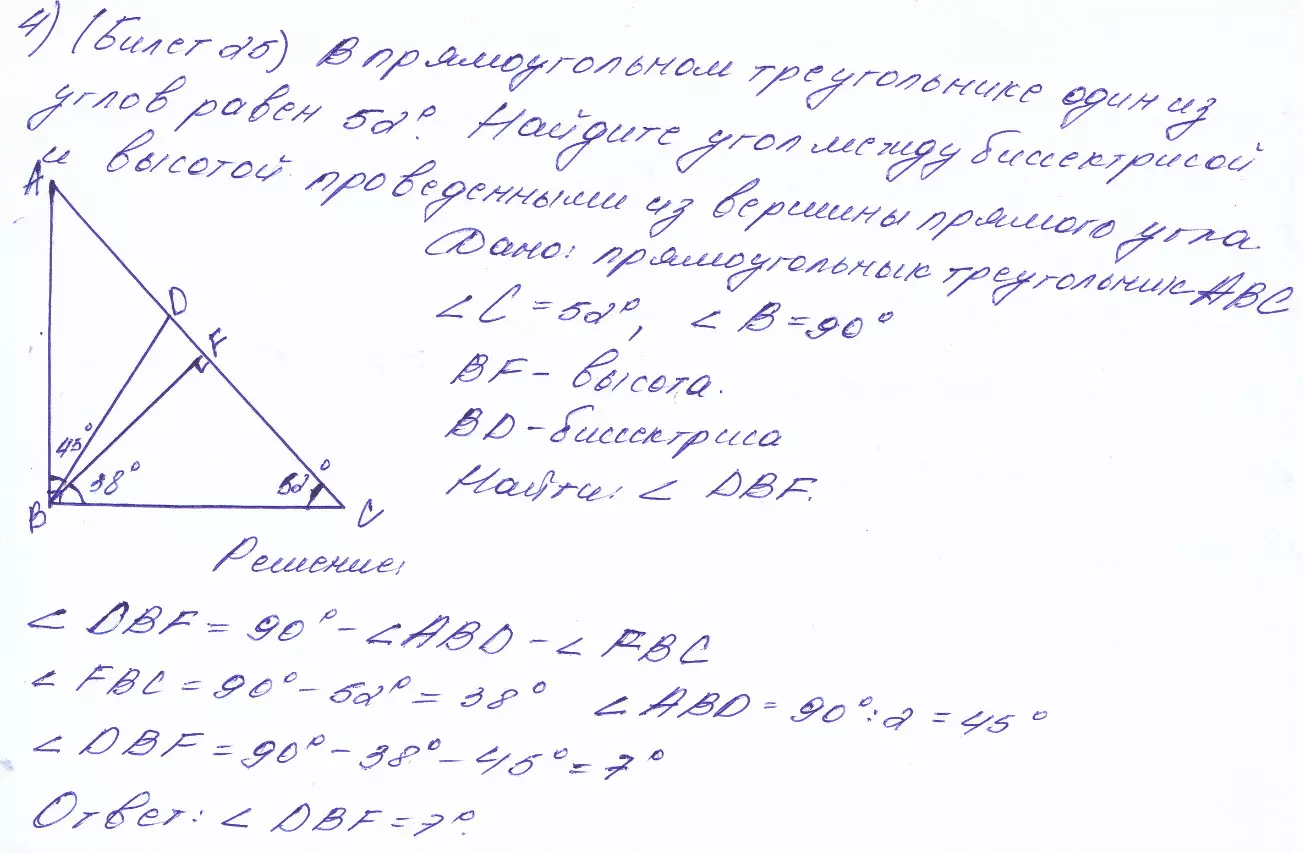 4) (Билет 25) В прямоугольном треугольнике один из
углов равен 52°. Найдите угол между биссектрисой
и высотой проведенными из вершины прямого угла
Дано: прямоугольнык треугольник ABC
∠C = 52°, ∠B = 90°
BF - высота.
BD - биссектриса
Найти: ∠ DBF.
A
D
F
45°
38°
52°
B
C
Решение:
∠ DBF = 90° - ∠ABD - ∠ FBC
∠ FBC = 90° - 52° = 38° ∠ ABD = 90° : 2 = 45°
∠ DBF = 90° - 38° - 45° = 7°
Ответ: ∠ DBF = 7°.